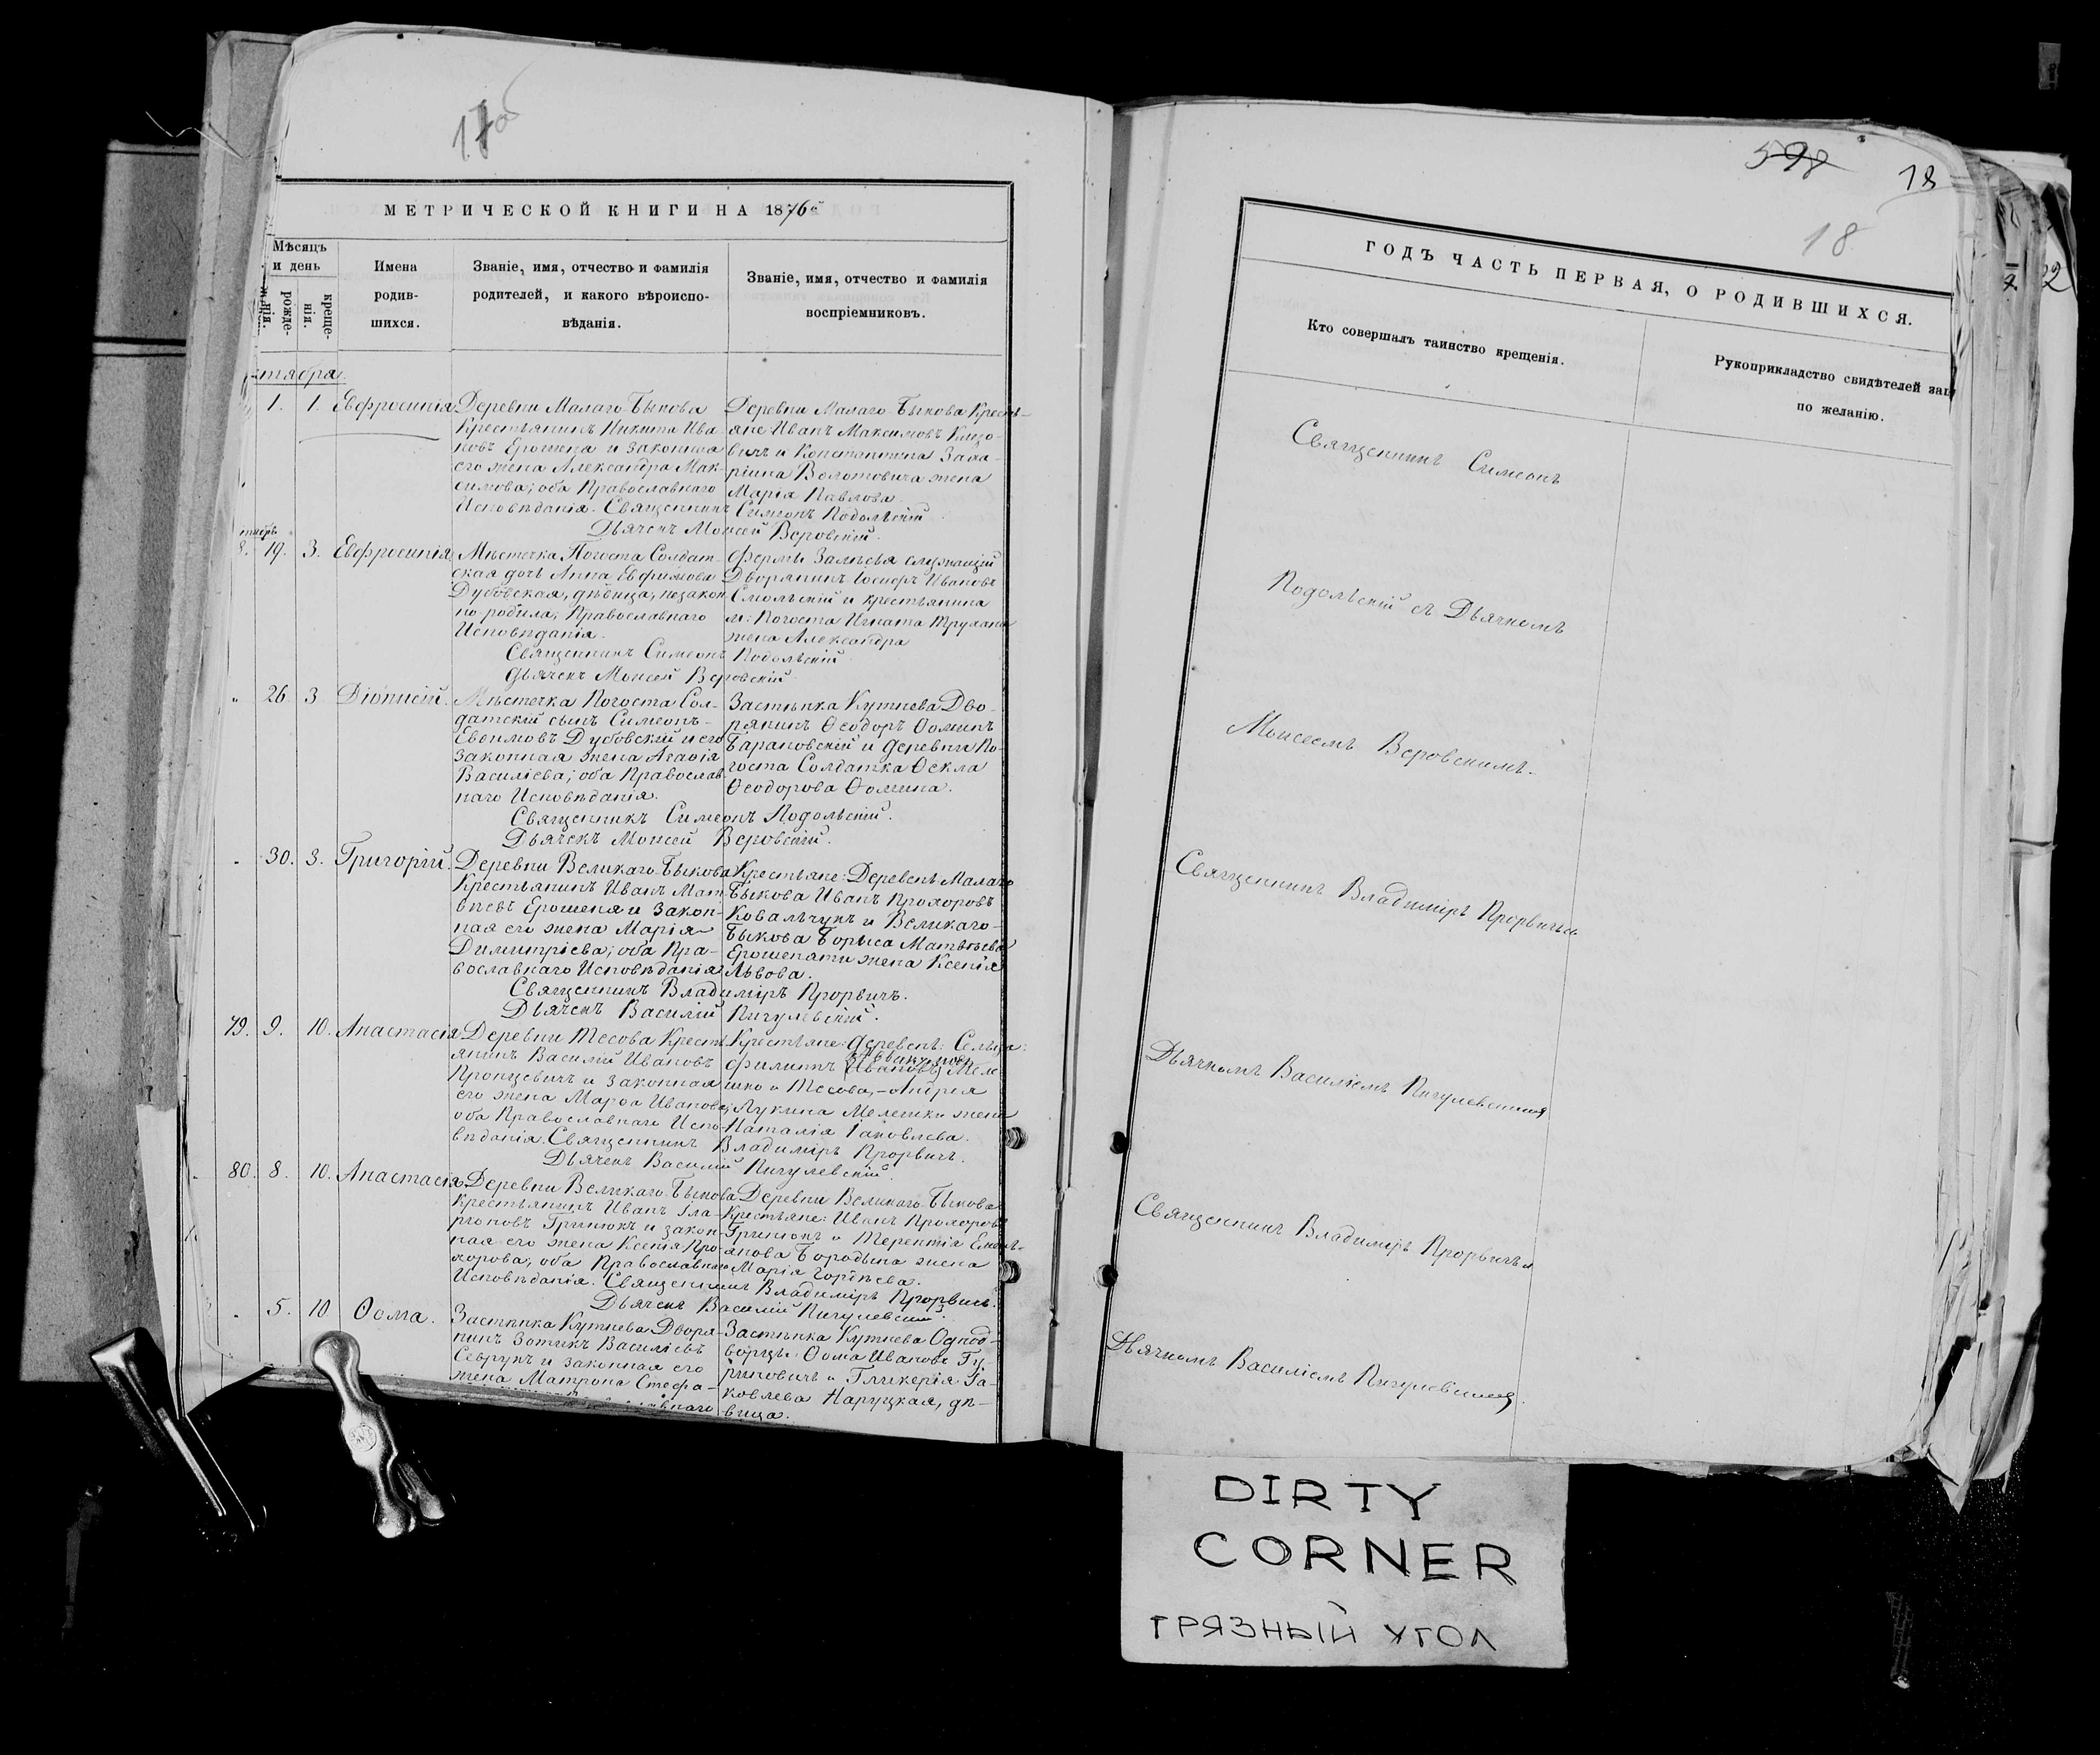 17об
МЕТРИЧЕСКОЙ КНИГИ НА 1876й
Мѣсяцъ
и день
рожде-
нія.
креще-
нія.
Имена
родив-
шихся.
Званіе, имя, отчество и фамилія
родителей, и какого вѣроиспо-
вѣданія.
Званіе, имя, отчество и фамилія
воспріемниковъ.
тября.
1. 1. Евфросинія
Деревни Малаго-Быкова
Крестьянинъ Никита Ива
новъ Ерошеня и законная
его жена Александра Мак-
симова; оба Православнаго
Исповѣданія. Священникъ Симеонъ Подольскій
Дьячекъ Моисей Веровскій.
Деревни Малаго-Быкова Кресть-
яне Иванъ Максимовъ
вичъ и Константина Заха-
ріина Волотовича жена
Марія Павлова.
8. 19. 3. Евфросинія
Мѣстечка Погоста Солдат-
ская дочь Анна Евфимова
Дубовская, дѣвица, незакон
но родила, Православнаго
Исповѣданія.
Фермы Залѣсья служащій
Дворянинъ Іосифъ Ивановъ
Смольскій и крестьянина
м: Погоста Игната Трухана
жена Александра
Священникъ Симеонъ Подольскій
Дьячекъ Моисей Веровскій.
" 26 3 Діонисій.
Мѣстечка Погоста Сол-
датскій сынъ Симеонъ-
Евѳимовъ Дубовскій и его
законная жена Агаѳія
Василіева; оба Православ
наго Исповѣданія.
Застѣнка Кутнева Дво-
рянинъ Ѳеодоръ Ѳоминъ
Барановскій и деревни По-
госта Солдатка Ѳекла
Ѳеодорова Ѳомина.
Священникъ Симеонъ Подольскій.
Дьячекъ Моисей Веровскій.
" 30. 3. Григорій.
Деревни Великаго-Быкова
Крестьянинъ Иванъ Мат-
вѣевъ Ерошеня и закон-
ная его жена Марія
Димитріева; оба Пра-
вославнаго Исповѣданія.
Крестьяне: Деревень: Малаго
Быкова Иванъ Прохоровъ
Ковальчукъ и Великаго-
Быкова Бориса Матѳѣева
Ерошеняти жена Ксенія
Львова.
Священникъ Владиміръ Прорвичъ.
Дьячекъ Василій Пигулевскій.
79. 9. 10. Анастасія
Деревни Тесова Кресть
янинъ Василій Ивановъ
Пронцевичъ и законная
его жена Марѳа Иванова;
оба Православнаго Испо-
вѣданія. Священникъ Владиміръ Прорвичъ.
Дьячекъ Василій Пигулевскій.
Крестьяне: деревень: Сельца:
Филиппъ Ивановъ Меле
шко и Тесова,-Андрея
Лукина Мелешки жена
Наталія Іаковлева.
80. 8. 10. Анастасія.
Деревни Великаго-Быкова
Крестьянинъ Иванъ Ила-
ріоновъ Гринюкъ и закон-
ная его жена Ксенія Про-
хорова; оба Православнаго
Исповѣданія. Священникъ Владиміръ Прорвичъ.
Дьячекъ Василій Пигулевскій.
Деревни Великаго-Быкова
Крестьяне: Иванъ Прохоровъ
Гринюкъ и Терентія Емель-
янова Бородына жена
Марія Гордѣева.
" 5. 10 Ѳома.
Застѣнка Кутнева Дворя-
нинъ Зотикъ Василіевъ
Севрукъ и законная его
жена Матрона Стефа-
Застѣнка Кутнева Однод-
ворцы: Ѳома Ивановъ Гу-
риновичъ и Гликерія Іа-
ковлева Наруцкая, дѣ-
вица.
598 18
18
ГОДЪ ЧАСТЬ ПЕРВАЯ, О РОДИВШИХСЯ.
Кто совершалъ таинство крещенія.
Рукоприкладство свидѣтелей зап
по желанію.
Священникъ Симеонъ
Подольскій съ Дьячкомъ
Моисеемъ Веровскимъ.
Священникъ Владиміръ Прорвичъ съ
Дьячкомъ Василіемъ Пигулевскимъ
Священникъ Владиміръ Прорвичъ съ
Дьячкомъ Василіемъ Пигулевскимъ.
22
DIRTY
CORNER
ГРЯЗНЫЙ УГОЛ